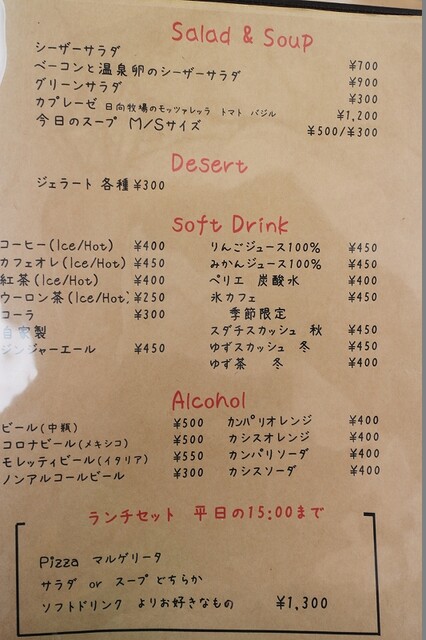 Salad & Soup
シーザーサラダ ¥700
ベーコンと温泉卵のシーザーサラダ ¥900
グリーンサラダ ¥300
カプレーゼ 日向牧場のモッツァレッラ トマト バジル ¥1,200
今日のスープ M/Sサイズ ¥500/¥300
Desert
ジェラート 各種 ¥300
soft Drink
コーヒー(Ice/Hot) ¥400
カフェオレ(Ice/Hot) ¥450
紅茶(Ice/Hot) ¥400
ウーロン茶(Ice/Hot) ¥250
コーラ ¥300
自家製
ジンジャーエール ¥450
りんごジュース100% ¥450
みかんジュース100% ¥450
ペリエ 炭酸水 ¥400
氷カフェ ¥450
季節限定
スダチスカッシュ 秋 ¥450
ゆずスカッシュ 冬 ¥450
ゆず茶 冬 ¥400
Alcohol
ビール(中瓶) ¥500
コロナビール(メキシコ) ¥500
モレッティビール(イタリア) ¥550
ノンアルコールビール ¥300
カンパリオレンジ ¥400
カシスオレンジ ¥400
カンパリソーダ ¥400
カシスソーダ ¥400
ランチセット 平日の15:00まで
Pizza マルゲリータ
サラダ or スープ どちらか
ソフトドリンク よりお好きなもの ¥1,300